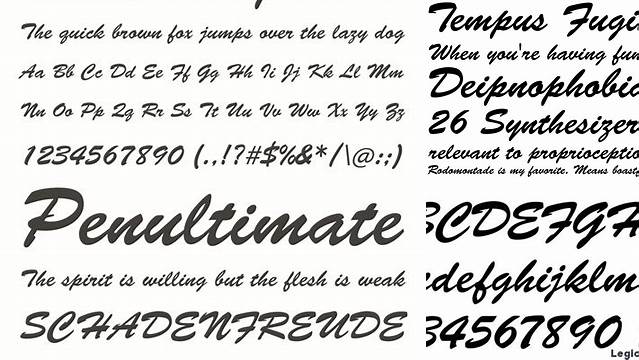 The quick brown fox jumps over the lazy dog
Aa Bb Cc Dd Ee Ff Gg Hh Ii Jj Kk Ll Mm
Nn Oo Pp Qq Rr Ss Tt Uu Vv Ww Xx Yy Zz
1234567890 (.,!?#$%&*/\@:;)
Penultimate
The spirit is willing but the flesh is weak
SCHADENFREUDE
Tempus Fugi
When you're having fun
Deipnophobia
26 Synthesizer
relevant to proprioception
Rodomontade is my favorite. Means boastf
BCDEFGH
defghijklm
34567890